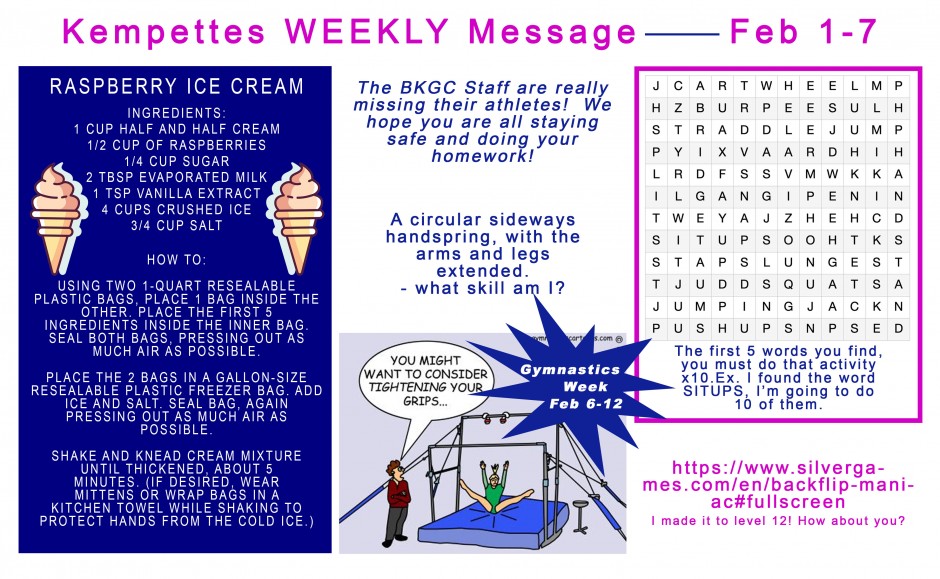 Kempettes WEEKLY Message —— Feb 1-7
RASPBERRY ICE CREAM
INGREDIENTS:
1 CUP HALF AND HALF CREAM
1/2 CUP OF RASPBERRIES
1/4 CUP SUGAR
2 TBSP EVAPORATED MILK
1 TSP VANILLA EXTRACT
4 CUPS CRUSHED ICE
3/4 CUP SALT
HOW TO:
USING TWO 1-QUART RESEALABLE
PLASTIC BAGS, PLACE 1 BAG INSIDE THE
OTHER. PLACE THE FIRST 5
INGREDIENTS INSIDE THE INNER BAG.
SEAL BOTH BAGS, PRESSING OUT AS
MUCH AIR AS POSSIBLE.
PLACE THE 2 BAGS IN A GALLON-SIZE
RESEALABLE PLASTIC FREEZER BAG. ADD
ICE AND SALT. SEAL BAG, AGAIN
PRESSING OUT AS MUCH AIR AS
POSSIBLE.
SHAKE AND KNEAD CREAM MIXTURE
UNTIL THICKENED, ABOUT 5
MINUTES. (IF DESIRED, WEAR
MITTENS OR WRAP BAGS IN A
KITCHEN TOWEL WHILE SHAKING TO
PROTECT HANDS FROM THE COLD ICE.)
The BKGC Staff are really
missing their athletes! We
hope you are all staying
safe and doing your
homework!
A circular sideways
handspring, with the
arms and legs
extended.
- what skill am I?
YOU MIGHT
WANT TO CONSIDER
TIGHTENING YOUR
GRIPS...
Gymnastics
Week
Feb 6-12
J C A R T W H E E L M P
H Z B U R P E E S U L H
S T R A D D L E J U M P
P Y I X V A A R D H I H
L R D F S S V M W K K A
I L G A N G I P E N I N
T W E Y A J Z H E H C D
S I T U P S O O H T K S
S T A P S L U N G E S T
T J U D D S Q U A T S A
J U M P I N G J A C K N
P U S H U P S N P S E D
The first 5 words you find,
you must do that activity
x10.Ex. I found the word
SITUPS, I'm going to do
10 of them.
https://www.silverga-
mes.com/en/backflip-mani-
ac#fullscreen
I made it to level 12! How about you?